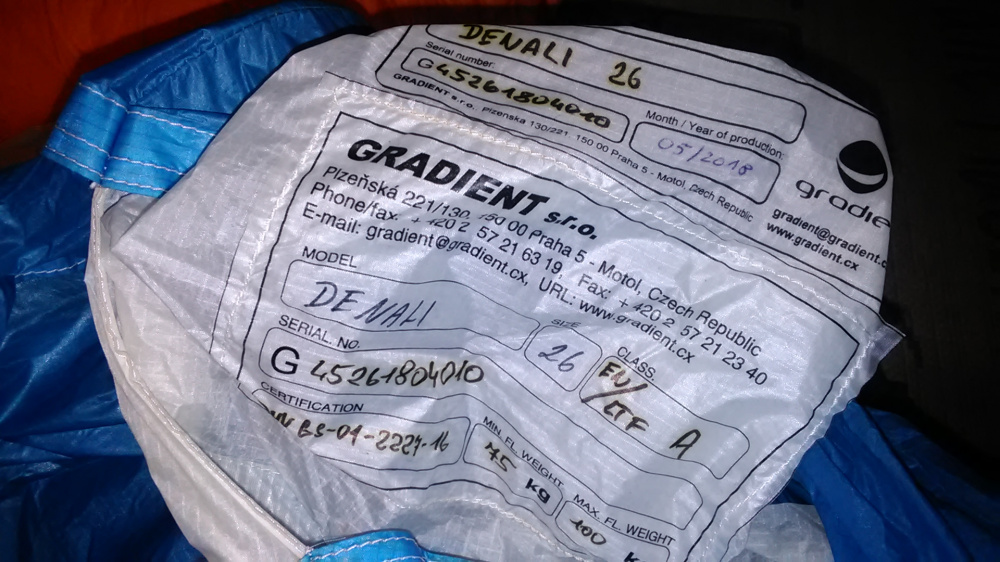 DENALI 26
Serial number:
G45261804010
Month / Year of production:
05/2018
GRADIENT s.r.o., Plzenska 130/221, 150 00 Praha 5 - Motol, Czech Republic
gradie
gradient@gradient.c
www.gradient.cx
GRADIENT s.r.o.
Plzeňská 221/130, 150 00 Praha 5 - Motol, Czech Republic
Phone/fax: +420 2 57 21 63 19, Fax: +420 2 57 21 23 40
E-mail: gradient@gradient.cx, URL: www.gradient.cx
MODEL
DENALI
SIZE
26
CLASS.
EN/LTF A
SERIAL. NO.
G 45261804010
CERTIFICATION
MIN. FL. WEIGHT
75 kg
MAX. FL. WEIGHT
100